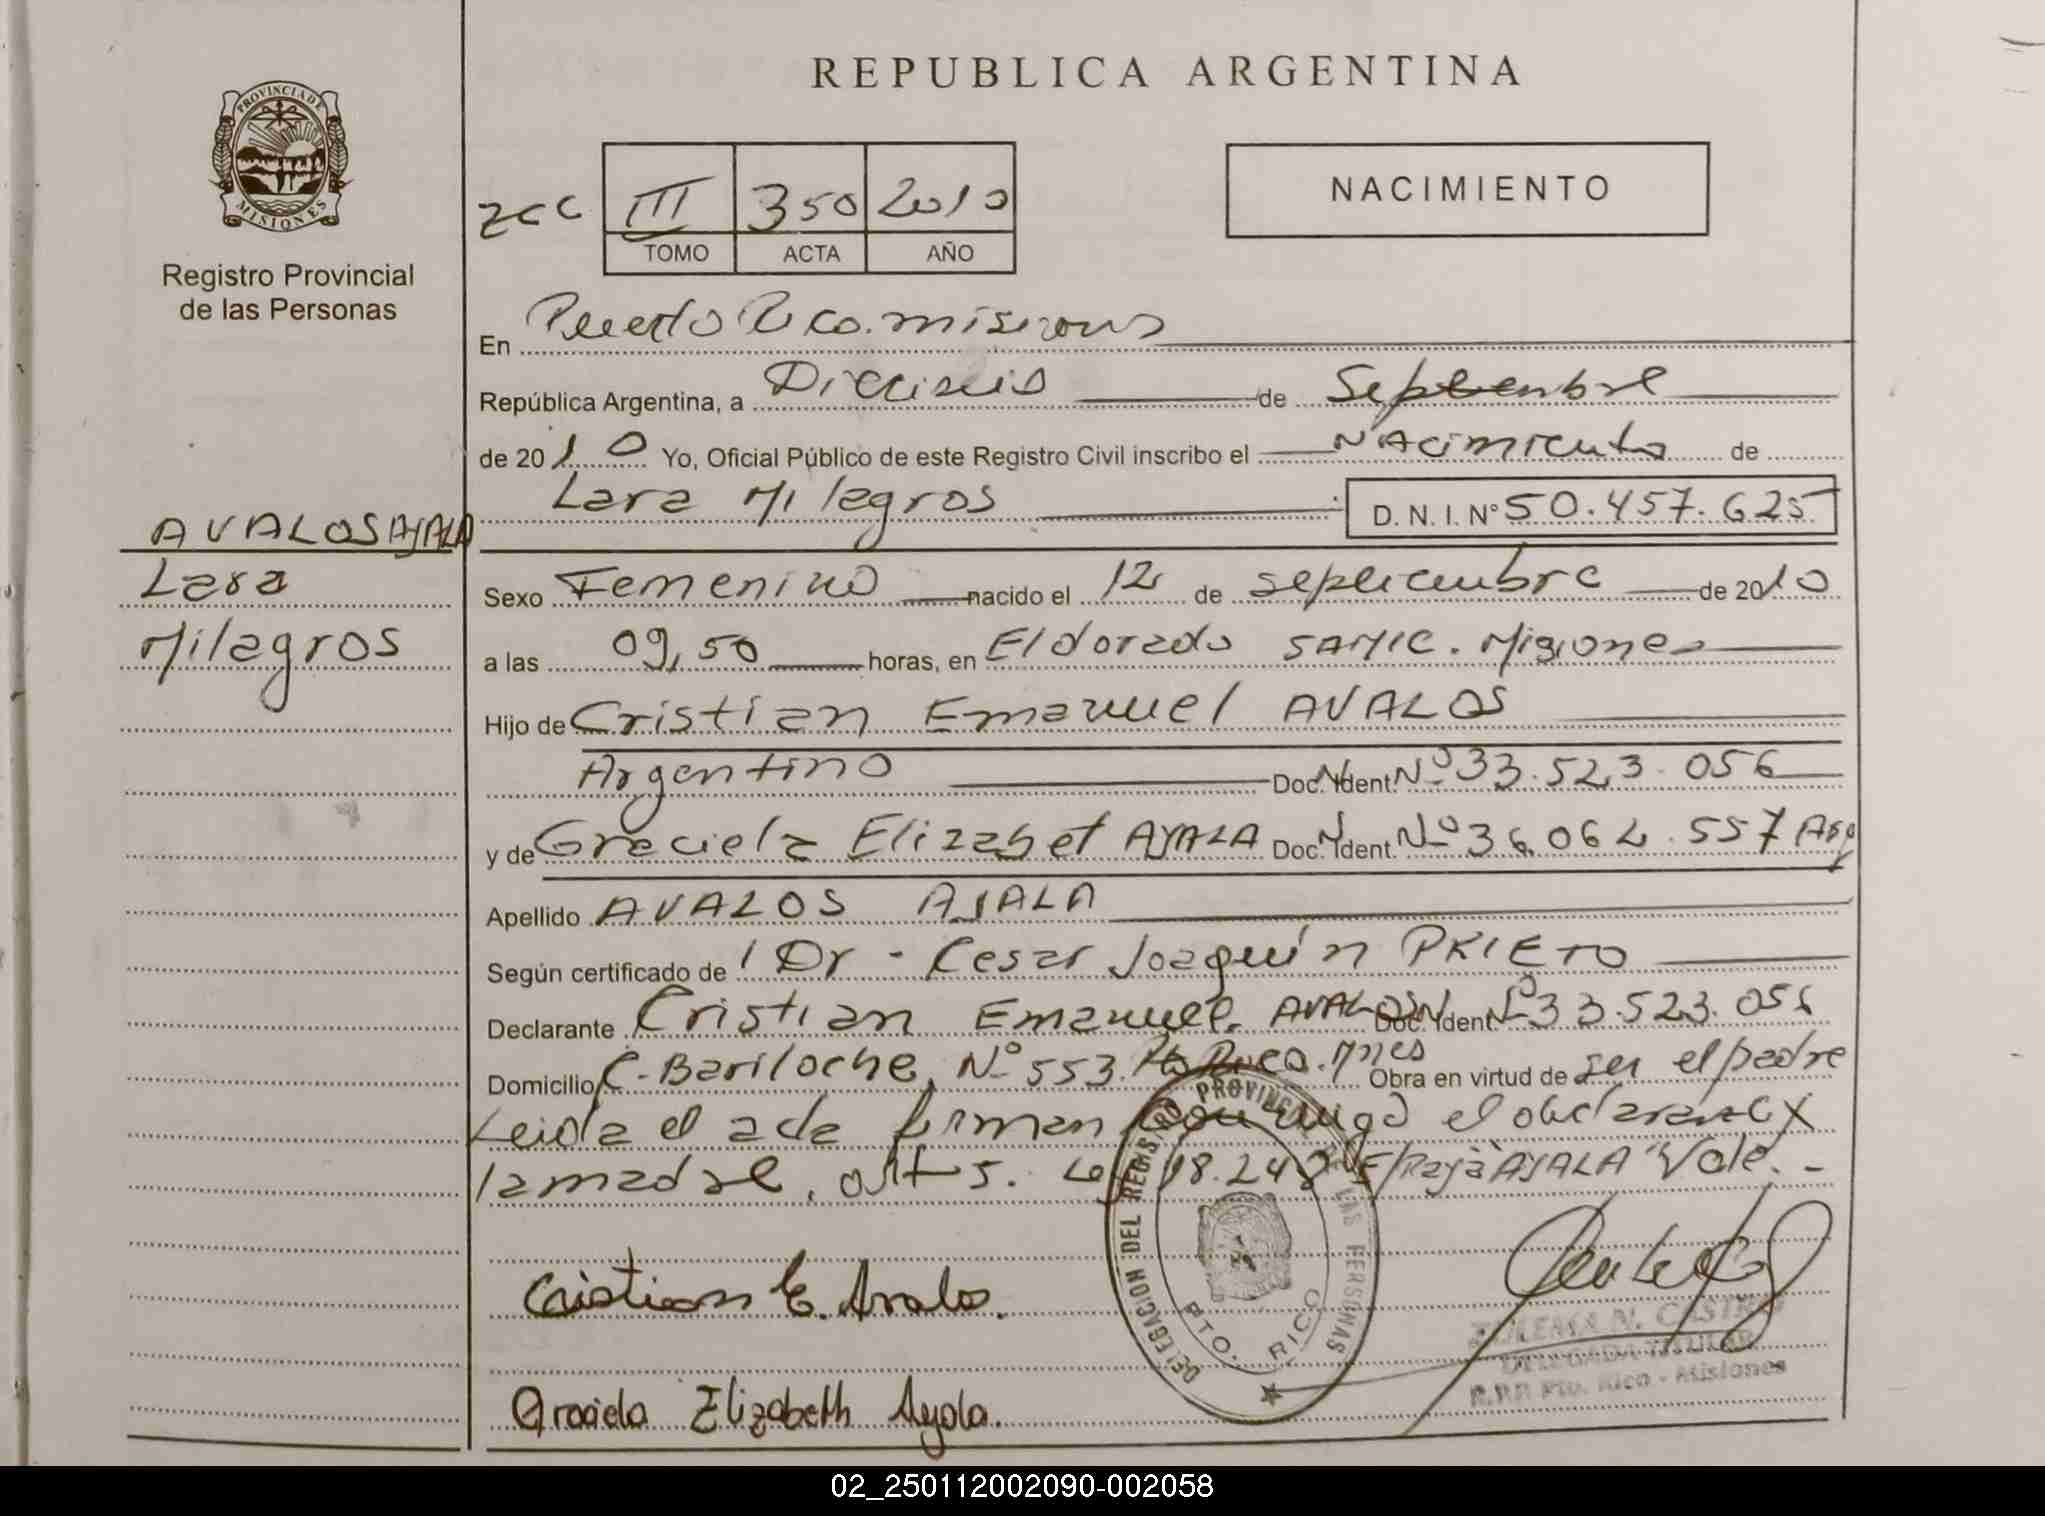 REPUBLICA ARGENTINA
PROVINCIA DE MISIONES
Registro Provincial
de las Personas
zcc III 350 2010
TOMO ACTA AÑO
NACIMIENTO
En Puerto Rico. misiones
República Argentina, a Dieciseis de Septembre
de 2010 Yo, Oficial Público de este Registro Civil inscribo el Nacimiento de
Lara Milagros D. N. I. N° 50.457.625
AVALOS AYALA
Lara
Milagros
Sexo Femenino nacido el 12 de septiembre de 2010
a las 09,50 horas, en Eldorado SAMIC. Misiones
Hijo de Cristian Emanuel AVALOS
Argentino Doc. Ident. Nº 33.523.056
y de Graciela Elizabet AYALA Doc. Ident. Nº 36.062.557 Arg
Apellido AVALOS AYALA
Según certificado de Dr - Cesar Joaquín PRIETO
Declarante Cristian Emanuel AVALOS Doc. Ident Nº 33.523.056
Domicilio C. Bariloche Nº 553. Pto Rico. Mnes Obra en virtud de ser el padre
Leida el acta firman conmigo el declarante y
la madre, art 5. Ley 18.248 E/Raya AYALA Vale. -
Cristian E. Avalos.
DELEGACION DEL REGISTRO PROVINCIAL DE LAS PERSONAS
PTO. RICO
ZULEMA N. CASTRO
DELEGADA TITULAR
R.P.P. Pto. Rico - Misiones
Graciela Elizabeth Ayala.
02_250112002090-002058